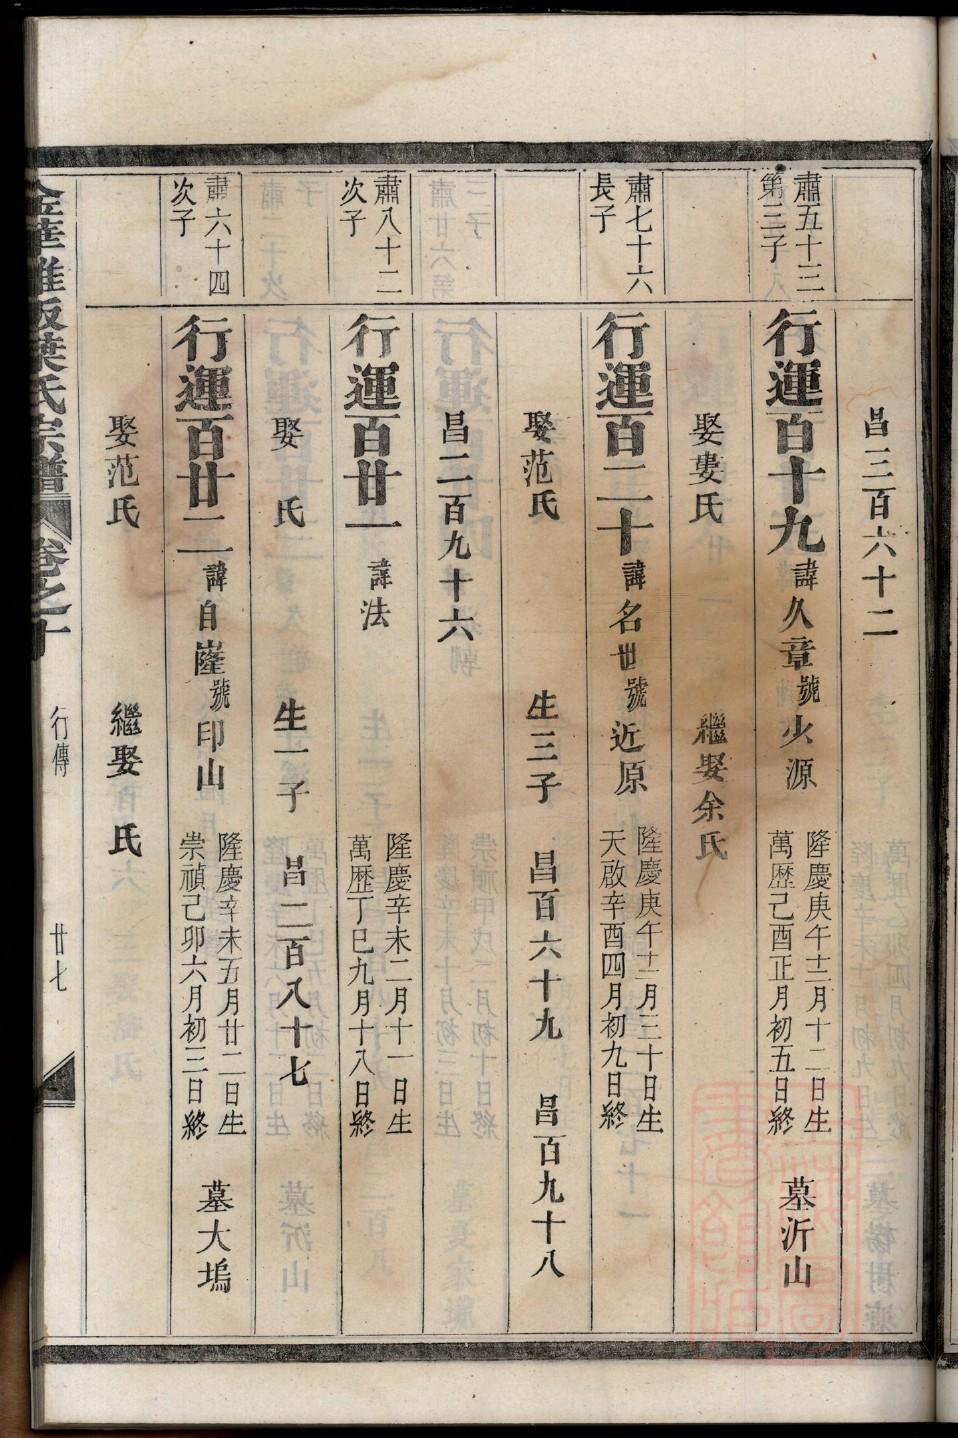 昌三百六十二
肅五十三
第三子
行運百十九 諱久章 號少源
隆慶庚午十二月十二日生
萬歷己酉正月初五日終
墓沂山
娶婁氏 繼娶余氏
肅七十六
長子
行運百二十 諱名世 號近原
隆慶庚午十二月三十日生
天啟辛酉四月初九日終
娶范氏 生三子 昌百六十九 昌百九十八
昌二百九十六
肅八十二
次子
行運百廿一 諱法
隆慶辛未二月十一日生
萬歷丁巳九月十八日終
娶 氏 生一子 昌二百八十七
肅六十四
次子
行運百廿二 諱自嶐 號印山
隆慶辛未五月廿二日生
崇禎己卯六月初三日終
墓大塢
娶范氏 繼娶 氏
葉氏宗譜 卷之十 行傳 廿七